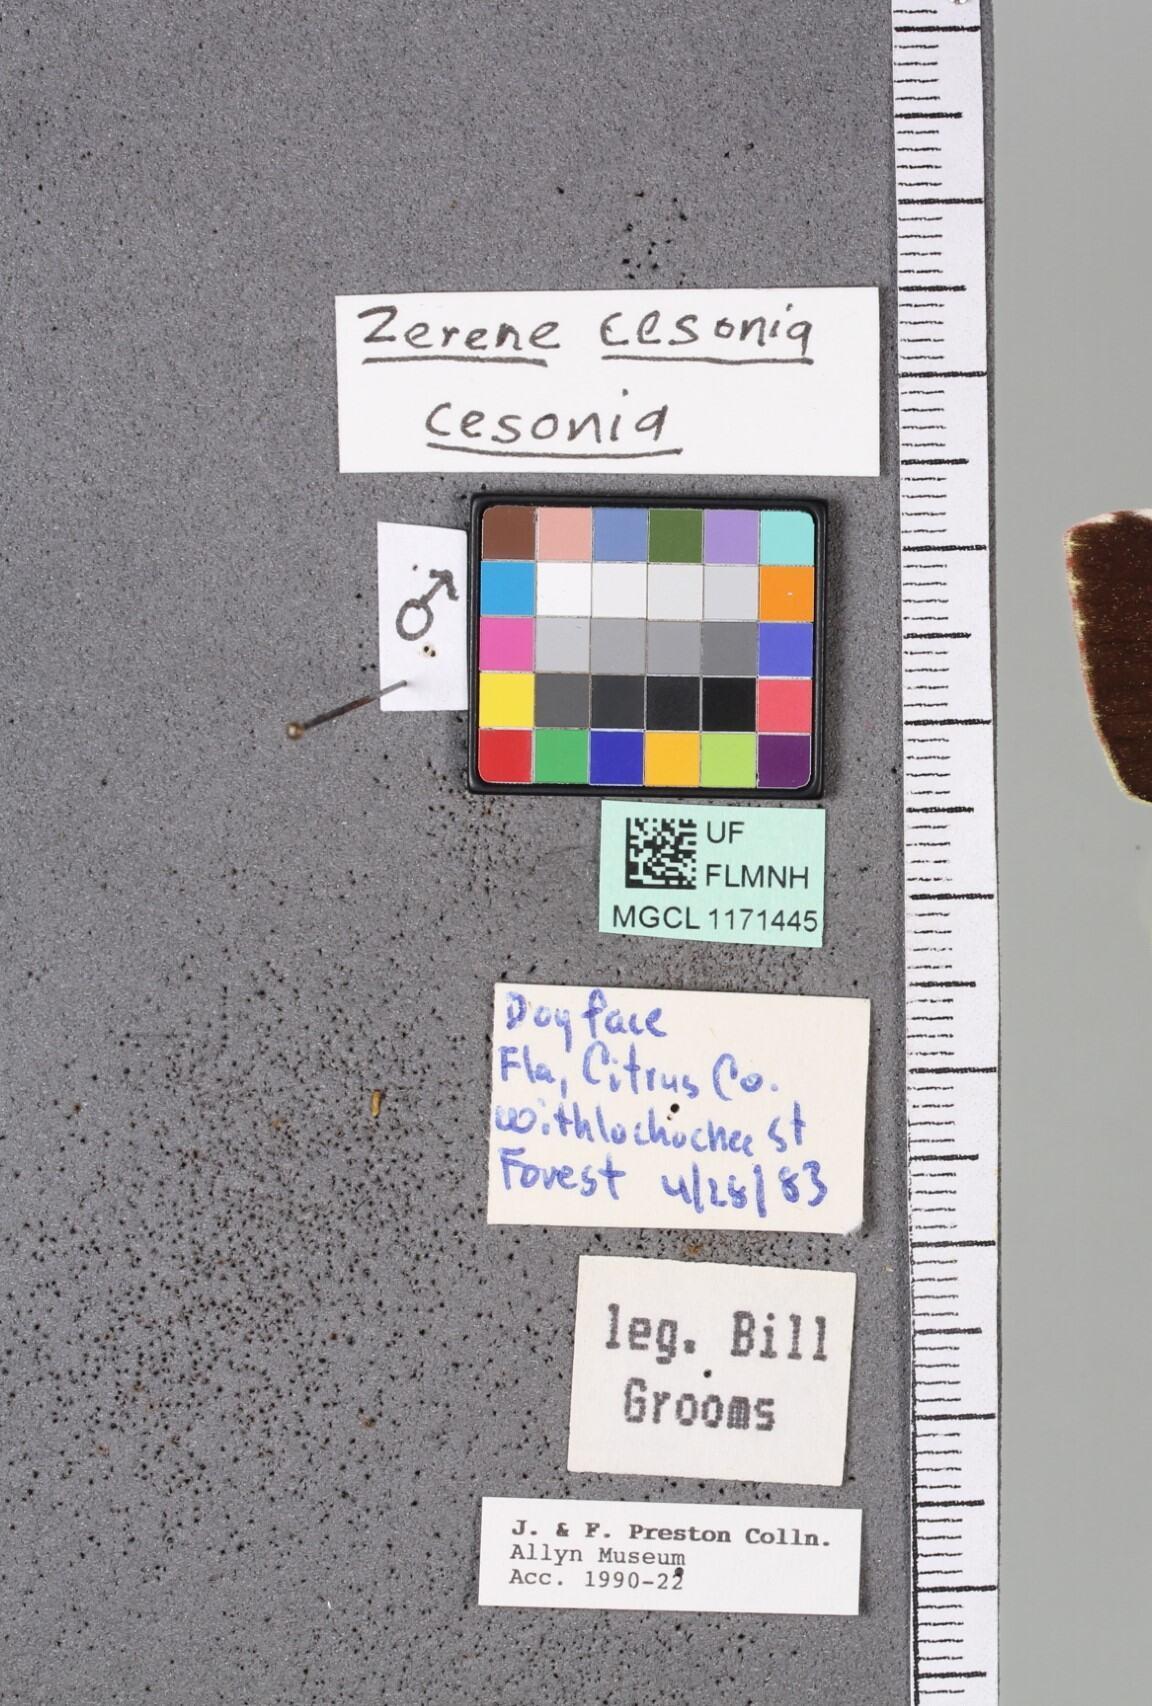 Zerene cesonia
cesonia
♂
UF
FLMNH
MGCL 1171445
Dog face
Fla, Citrus Co.
Withlochochee St
Forest 4/28/83
leg. Bill
Grooms
J. & F. Preston Colln.
Allyn Museum
Acc. 1990-22